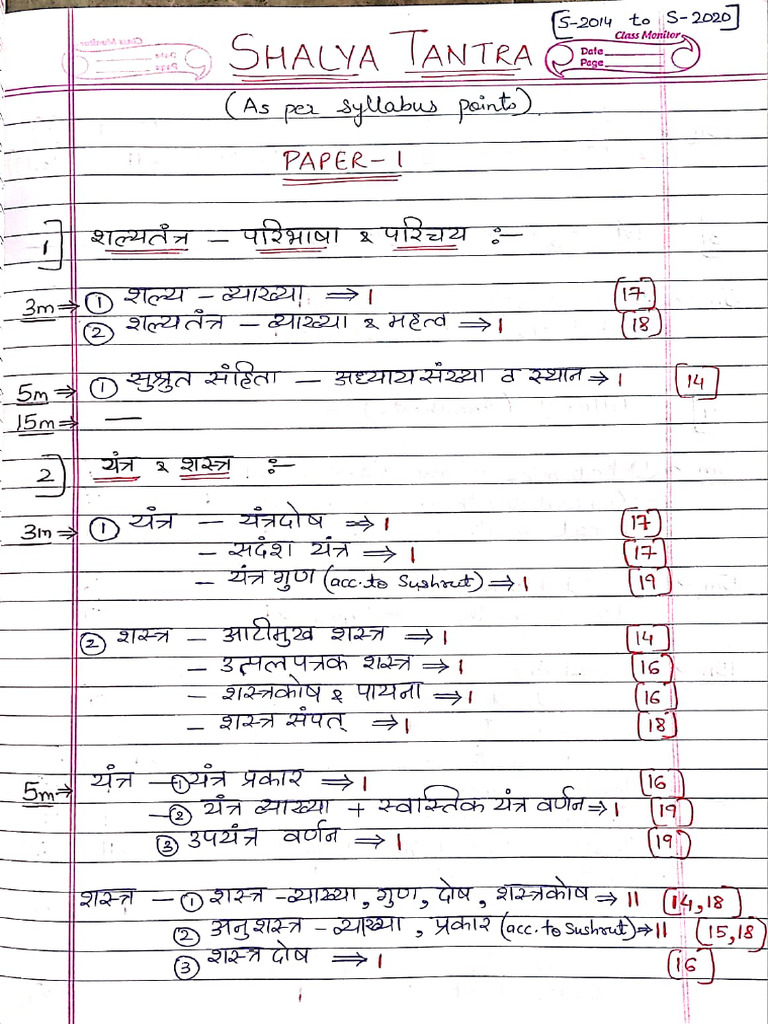 [S-2014 to S-2020]
Class Monitor
SHALYA TANTRA
Date
Page
(As per syllabus points)
PAPER-1
1] शल्यतंत्र – परिभाषा & परिचय :-
3m ⇒ ① शल्य – व्याख्या ⇒ 1 [17]
② शल्यतंत्र – व्याख्या & महत्व ⇒ 1 [18]
5m ⇒ ① सुश्रुत संहिता – अध्याय संख्या व स्थान ⇒ 1 [14]
15m ⇒ —
2] यंत्र & शस्त्र :-
3m ⇒ ① यंत्र – यंत्रदोष ⇒ 1 [17]
– सदंश यंत्र ⇒ 1 [17]
– यंत्रगुण (acc. to Sushrut) ⇒ 1 [19]
② शस्त्र – आटीमुख शस्त्र ⇒ 1 [14]
– उत्पलपत्रक शस्त्र ⇒ 1 [16]
– शस्त्रकोष & पायना ⇒ 1 [16]
– शस्त्र संपत् ⇒ 1 [18]
5m ⇒ यंत्र – ① यंत्र प्रकार ⇒ 1 [16]
– ② यंत्र व्याख्या + स्वास्तिक यंत्र वर्णन ⇒ 1 [19]
③ उपयंत्र वर्णन ⇒ 1 [19]
शस्त्र – ① शस्त्र – व्याख्या, गुण, दोष, शस्त्रकोष ⇒ 11 [14,18]
② अनुशस्त्र – व्याख्या, प्रकार (acc. to Sushrut) ⇒ 11 [15,18]
③ शस्त्र दोष ⇒ 1 [16]